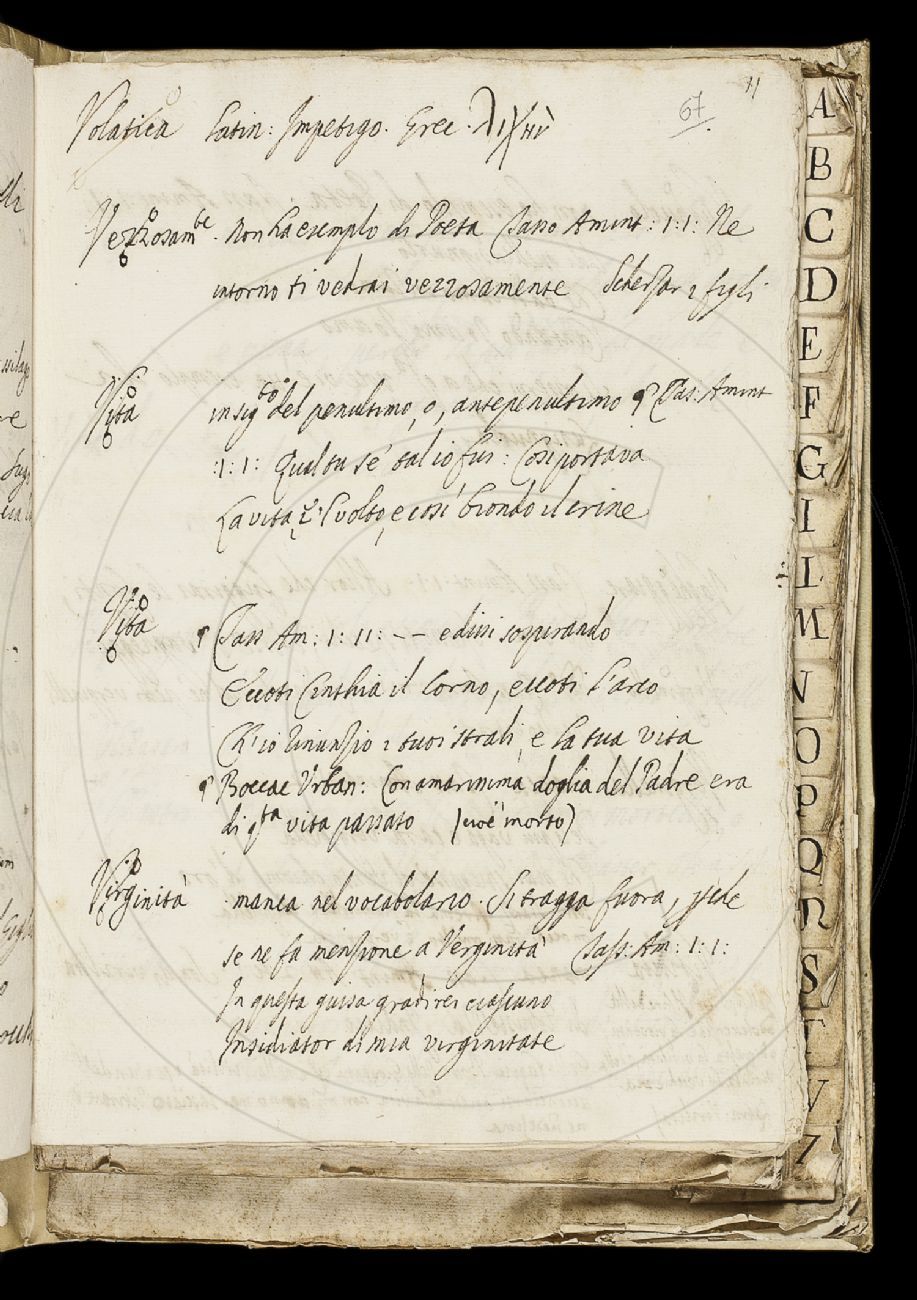 11
67
Volatica Latin: Impetigo. Grec. λιχην
Vezzosam.te non ha esemplo di Poeta Tasso Amint: 1: 1: Ne
intorno ti vedrai vezzosamente Scherzar i figli
Vita in sig.to del penultimo, o, antepenultimo Tas: Amint
:1: 1: Qual tu sé tal io fui: Cosi portava
La vita, e 'l volto, e così biondo il crine
Vita Tass Am: 1: 11: -- e dissi sospirando
Eccoti Cinthia il Corno, eccoti l'arco
Ch'io rinunzio i tuoi strali, e la tua vita
Boccac Urban: Con amarissima doglia del Padre era
di q.sta vita passato (cioè morto)
Virginità manca nel vocabolario. Si tragga fuora,
se ne fa menzione a Verginità Tass: Am: 1: 1:
In questa guisa gradirei ciascuno
Insidiator di mia virginitate
A
B
C
D
E
F
G
I
L
M
N
O
P
Q
R
S
T
V
Z